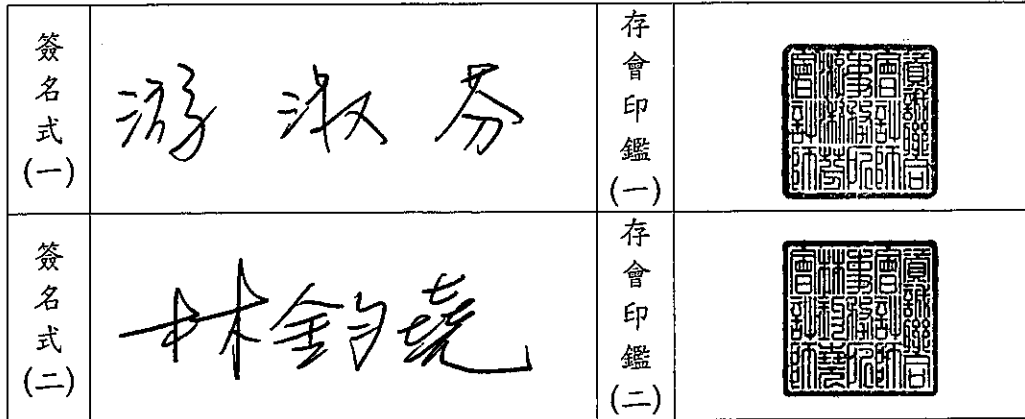 簽名式(一)
游淑芬
存會印鑑(一)
資誠聯合會計師事務所游淑芬會計師
簽名式(二)
林鈞堯
存會印鑑(二)
資誠聯合會計師事務所林鈞堯會計師